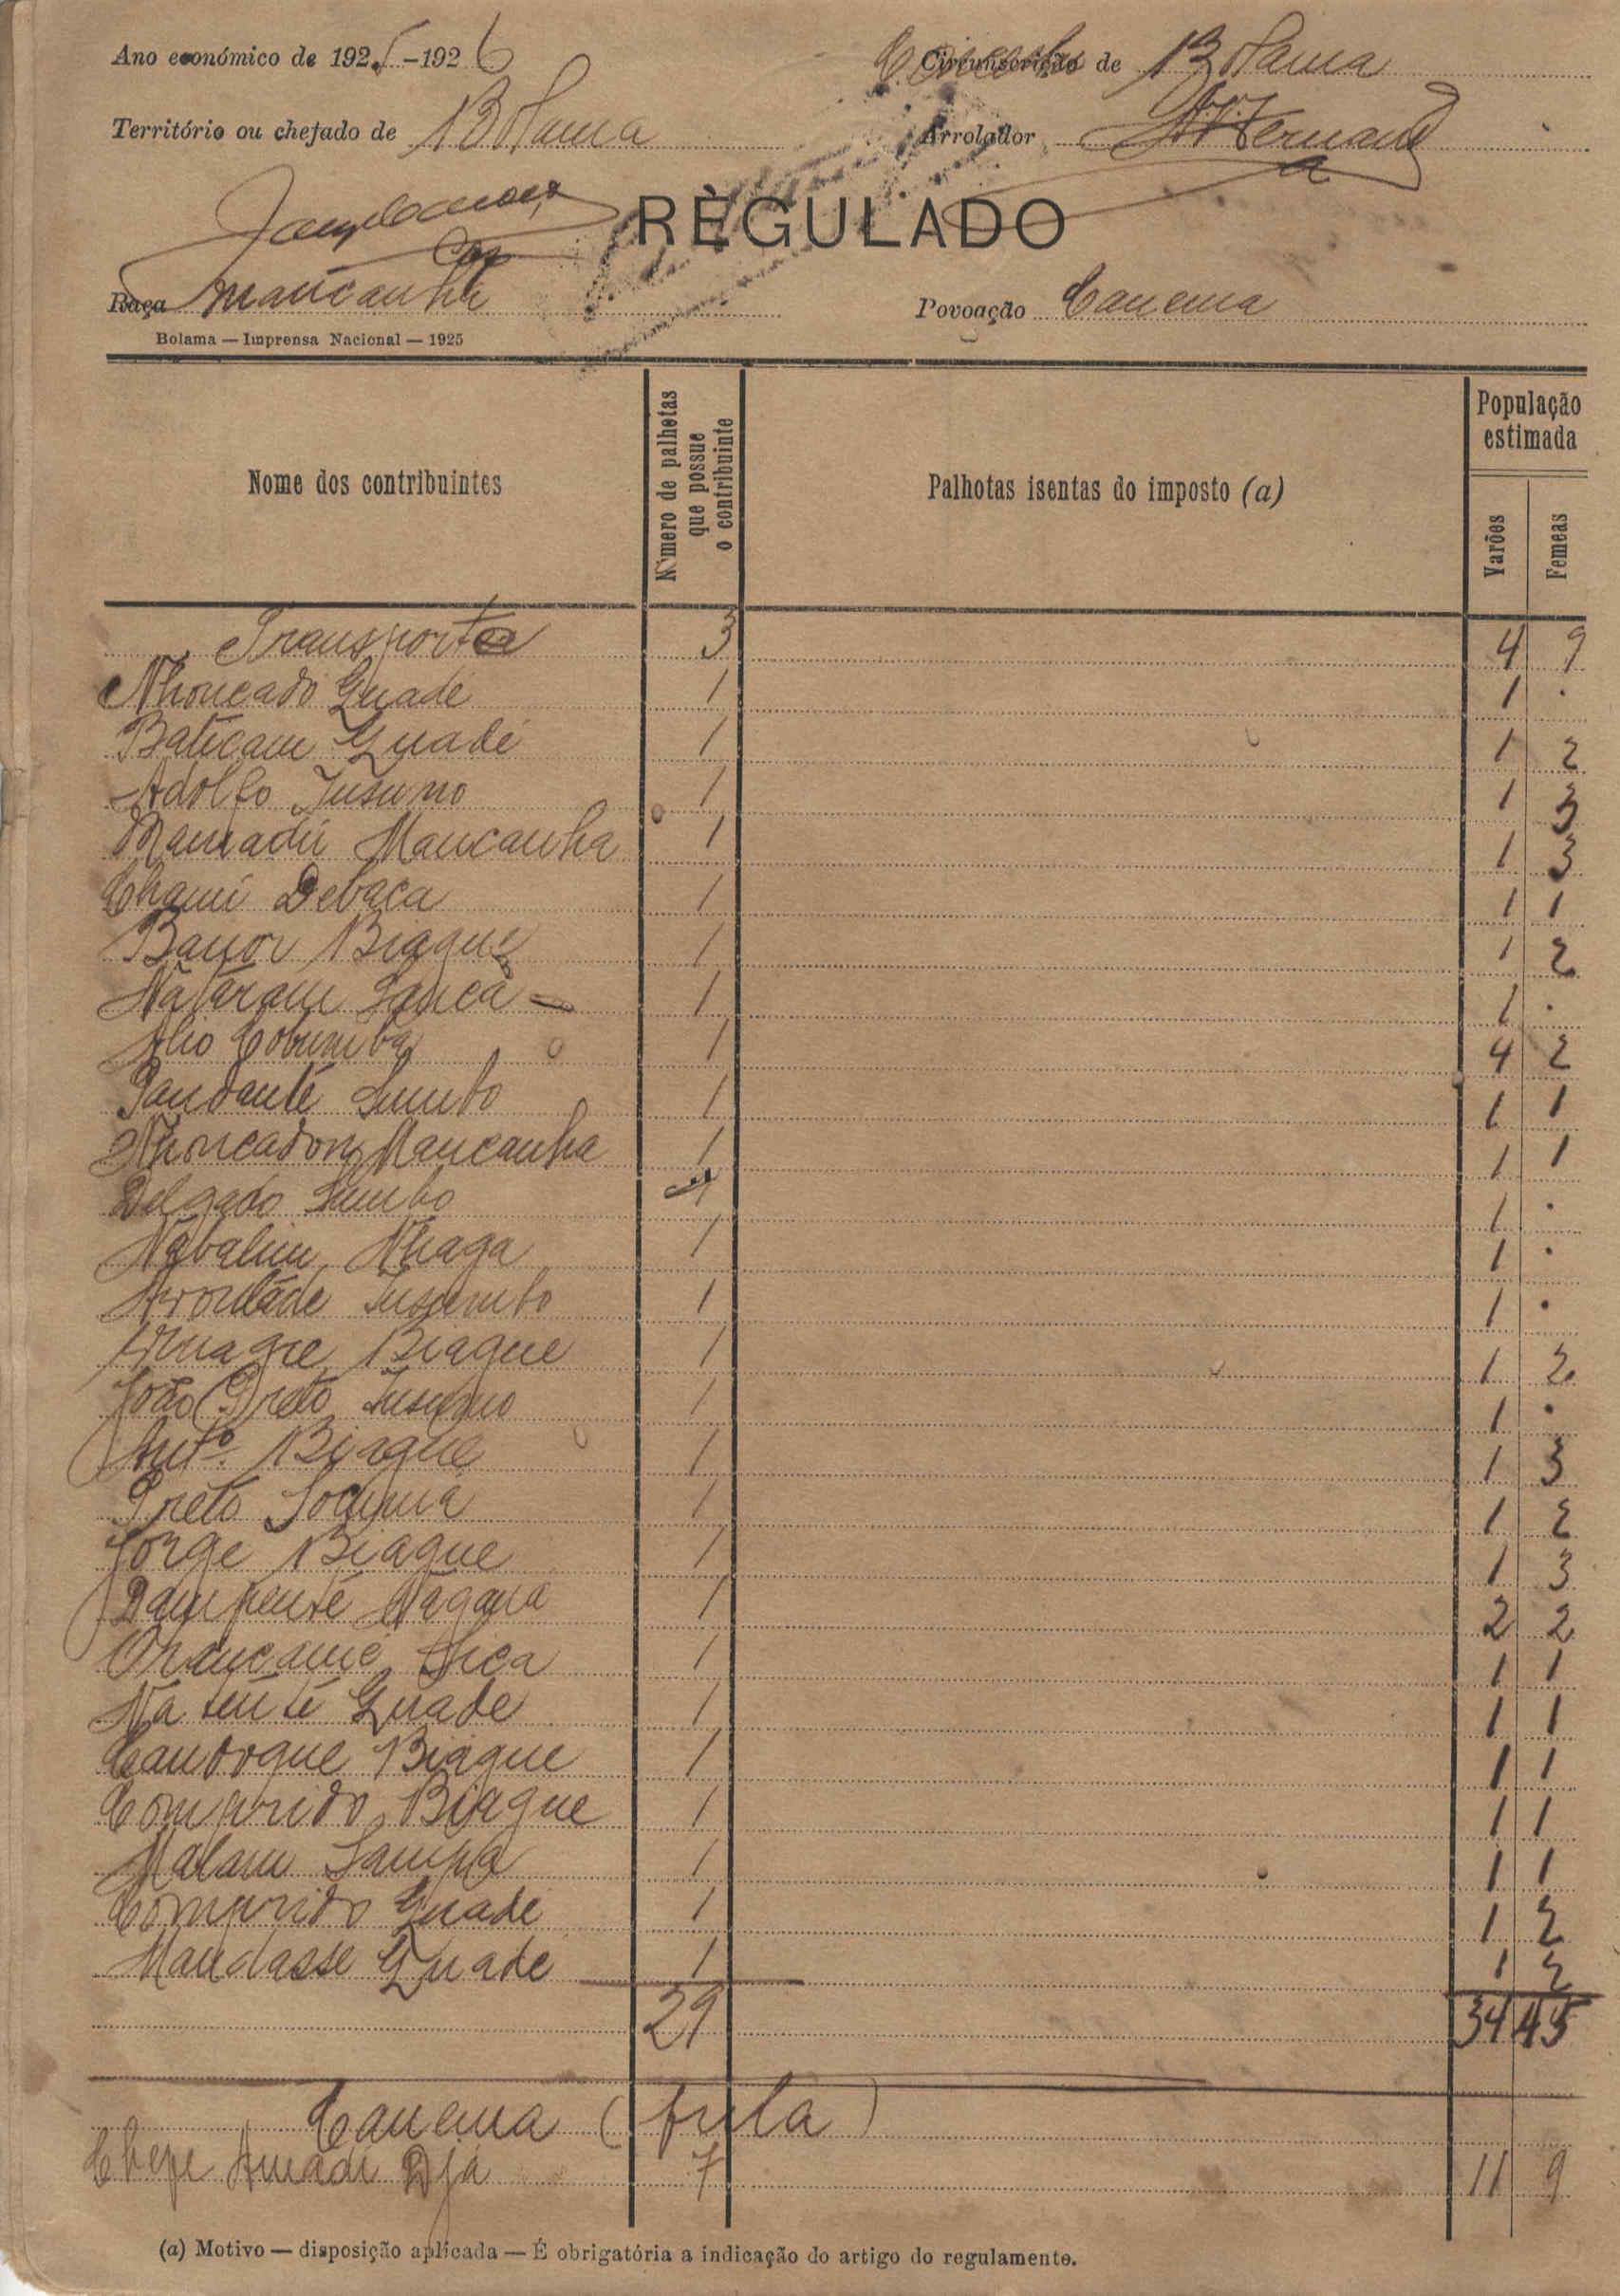 Ano económico de 1925-1926
Concelho de Bolama
Território ou chefado de Bolama
Arrolador
RÈGULADO
Raça Mancanha
Povoação Canema
Bolama — Imprensa Nacional — 1925
Nome dos contribuintes
Número de palhetas que possue o contribuinte
Palhotas isentas do imposto (a)
População estimada
Varões
Femeas
Transporte 3 4 9
Nhoncado Guadé 1 1 .
Baticam Guadé 1 1 2
Adolfo Jusumo 1 1 3
Mamadú Mancanha 1 1 3
Chami Debaca 1 1 1
Banor Biague 1 1 2
Nataram Sanca - 1 1 .
Alio 1 4 2
Pandanté Sumbo 1 1 1
Nhoncadon Mancanha 1 1 1
Delgado Sumbo 1 1 .
Nabalim Nhaga 1 1 .
1 1 .
Biague 1 1 2
João Preto 1 1 .
Antº. Biague 1 1 3
Preto 1 1 2
Jorge Biague 1 1 3
Dampenté Nagana 1 2 2
Sica 1 1 1
Na tenté Guade 1 1 1
Candogue Biague 1 1 1
Comprido Biague 1 1 1
Malam Sampa 1 1 1
Comprido Guadé 1 1 2
Mandasse Guade 1 1 2
29 34 45
Canema (fula)
Chefe Amadú Djá 7 11 9
(a) Motivo — disposição aplicada — É obrigatória a indicação do artigo do regulamento.